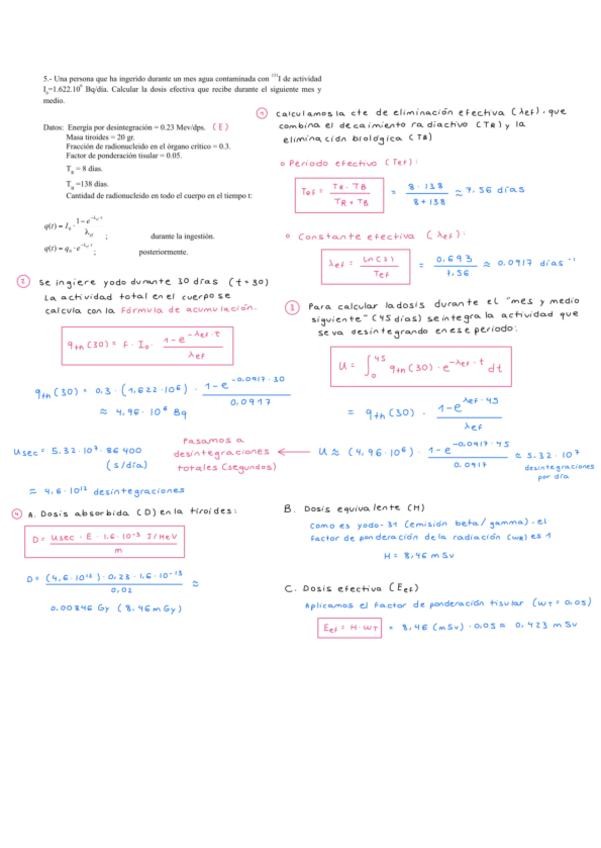 5.- Una persona que ha ingerido durante un mes agua contaminada con ¹³¹I de actividad
I₀=1.622.10⁶ Bq/día. Calcular la dosis efectiva que recibe durante el siguiente mes y
medio.
Datos: Energía por desintegración = 0.23 Mev/dps. (E)
Masa tiroides = 20 gr.
Fracción de radionucleido en el órgano crítico = 0.3.
Factor de ponderación tisular = 0.05.
T_R = 8 días.
T_B =138 días.
Cantidad de radionucleido en todo el cuerpo en el tiempo t:
q(t) = I₀ · (1 − e^(−λ_ef·t)) / λ_ef ; durante la ingestión.
q(t) = q₀ · e^(−λ_ef·t) ; posteriormente.
① Calculamos la cte de eliminación efectiva (λef), que
combina el decaimiento radiactivo (TR) y la
eliminación biológica (TB)
o Periodo efectivo (Tef):
Tef = (TR · TB) / (TR + TB) = (8 · 138) / (8 + 138) ≈ 7.56 días
o Constante efectiva (λef):
λef = ln(2) / Tef = 0.693 / 7.56 ≈ 0.0917 días⁻¹
② Se ingiere yodo durante 30 días (t=30)
La actividad total en el cuerpo se
calcula con la fórmula de acumulación.
q_th(30) = F · I₀ · (1 − e^(−λef · t)) / λef
q_th(30) = 0,3 · (1,622 · 10⁶) · (1 − e^(−0.0917 · 30)) / 0,0917
≈ 4,96 · 10⁶ Bq
③ Para calcular la dosis durante el "mes y medio
siguiente" (45 días) se integra la actividad que
se va desintegrando en ese periodo:
U = ∫₀⁴⁵ q_th(30) · e^(−λef · t) dt
= q_th(30) · (1 − e^(λef · 45)) / λef
U ≈ (4,96 · 10⁶) · (1 − e^(−0.0917 · 45)) / 0.0917 ≈ 5.32 · 10⁷
desintegraciones
por día
Pasamos a
desintegraciones
totales (segundos)
Usec = 5.32 · 10⁷ · 86400
(s/día)
= 4,6 · 10¹² desintegraciones
④ A. Dosis absorbida (D) en la tiroides:
D = (Usec · E · 1.6 · 10⁻¹³ J/MeV) / m
D = ((4,6 · 10¹²) · 0,23 · 1.6 · 10⁻¹³) / 0,02 ≈
0.00846 Gy (8.46 mGy)
B. Dosis equivalente (H)
Como es yodo-31 (emisión beta/gamma), el
factor de ponderación de la radiación (wR) es 1
H = 8,46 mSv
C. Dosis efectiva (Eef)
Aplicamos el factor de ponderación tisular (wT = 0.05)
Eef = H · wT = 8,46 (mSv) · 0,05 = 0,423 mSv